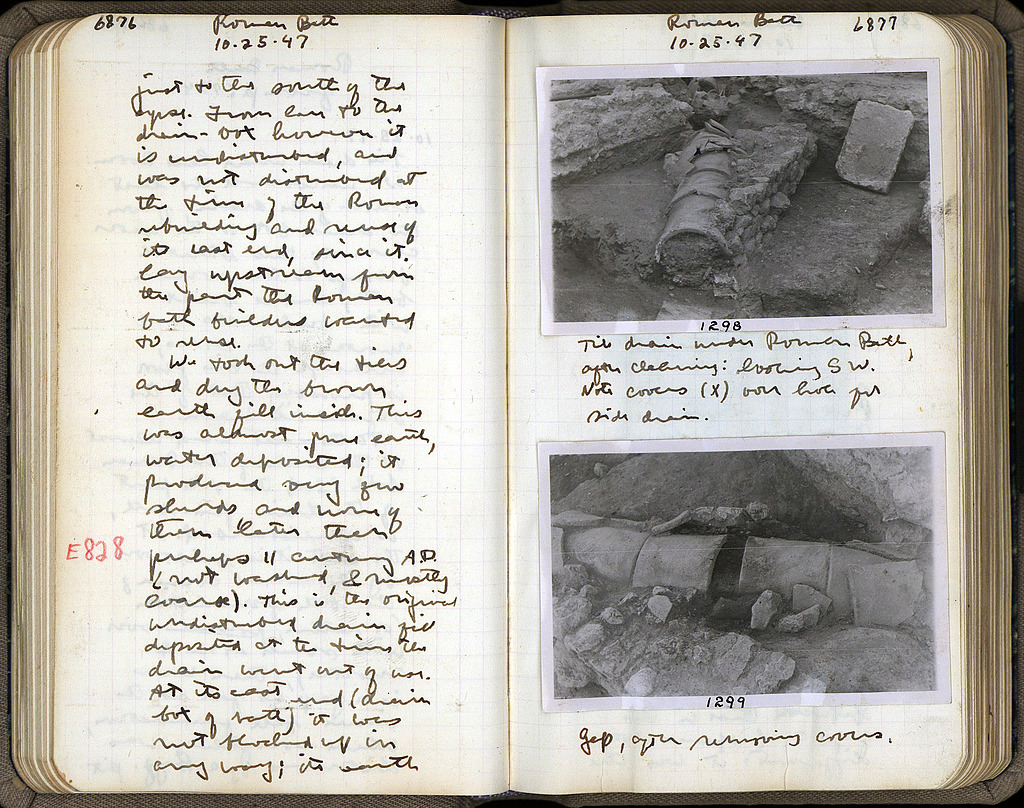 6876
Roman Bath
10.25.47
just to the south of the
apse. From here to the
drain-box however it
is undisturbed, and
was not disturbed at
the time of the Roman
rebuilding and reuse of
its east end, since it
lay upstream from
the part the Roman
bath builders wanted
to reuse.
We took out the tiles
and dug the brown
earth fill inside. This
was almost pure earth,
water deposited; it
produced very few
sherds and none of
them later than
E828
perhaps II century A.D.
(not washed, & mostly
coarse). This is the original
undisturbed drain fill
deposited at the time the
drain went out of use.
At its east end (drain
box of bath) it was
not blocked up in
any way; its earth
Roman Bath
6877
10.25.47
1298
Tile drain under Roman Bath,
after cleaning: looking SW.
Note covers (X) over hole for
side drain.
1299
Gap, after removing covers.